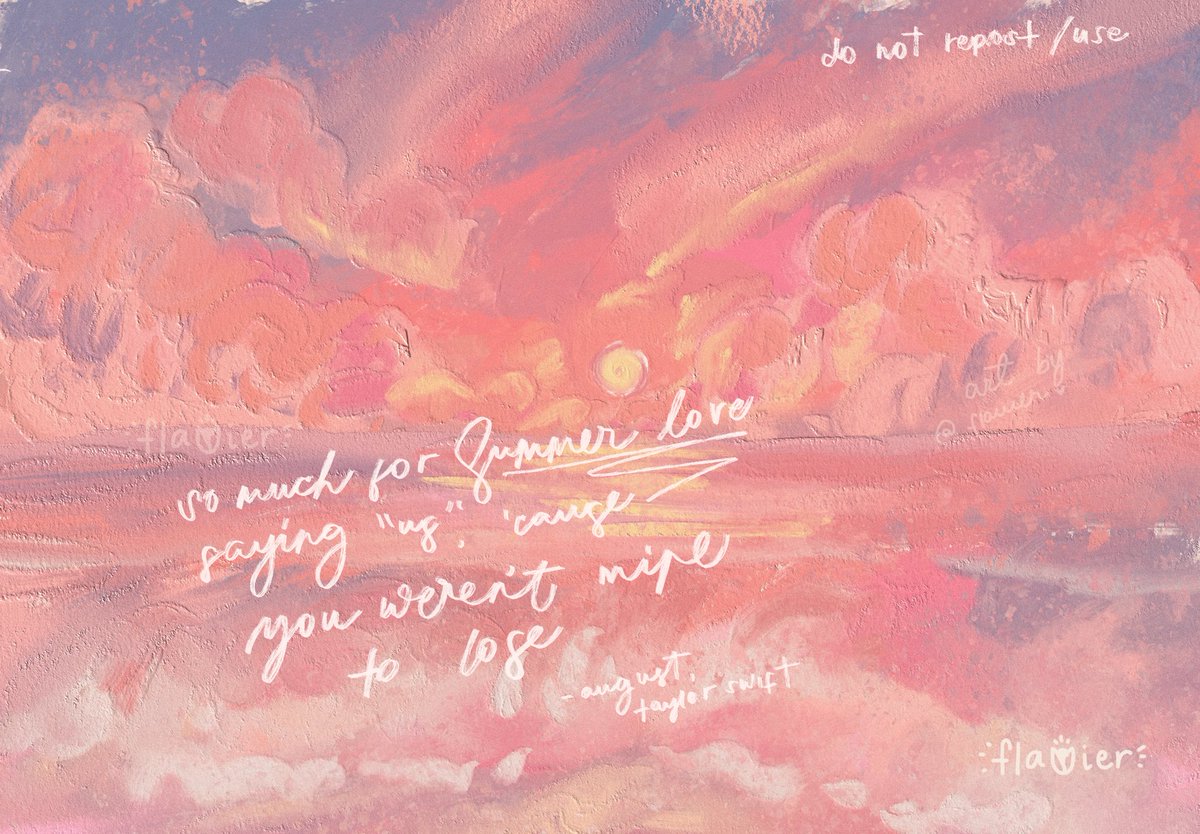 do not repost /use
art by
@flamier
flamier
so much for Summer love
saying "us", 'cause
you weren't mine
to lose
- august,
taylor swift
flamier